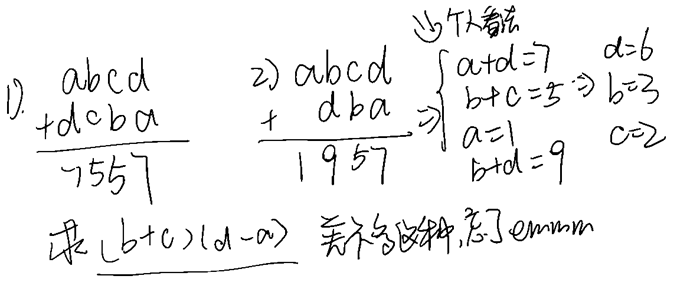 ↓↓个人看法
1). abcd
+dcba
7557
2) abcd
+ dba
1957
⇒ { a+d=7
b+c=5
a=1
b+d=9
⇒ d=6
b=3
c=2
求(b+c)(d-a) 差不多这种,忘了emmm